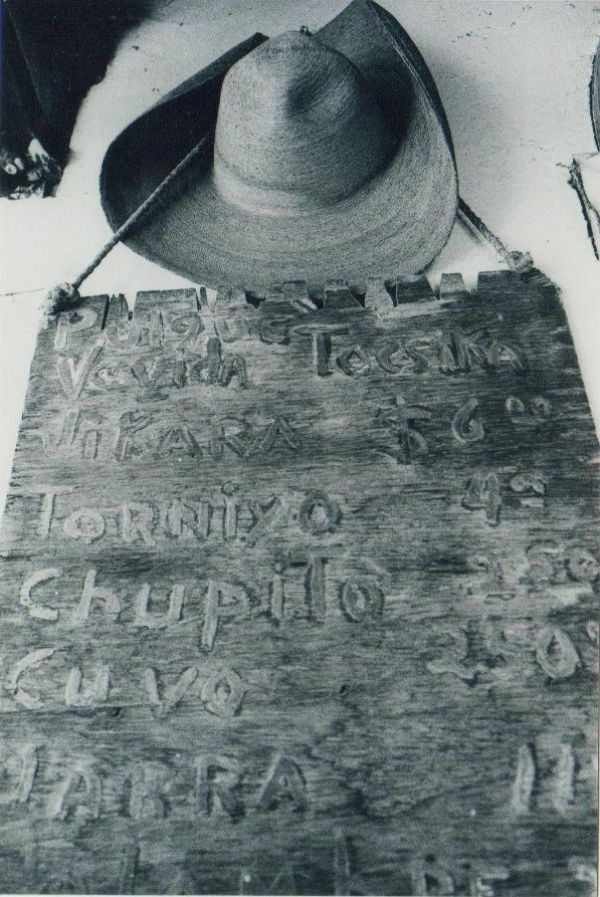 PULQUE
VeVida Tocsika
JiKARA $6.00
TORNiYO 4.00
ChupiTo 2.50
Cuvo 250
JARRA 11